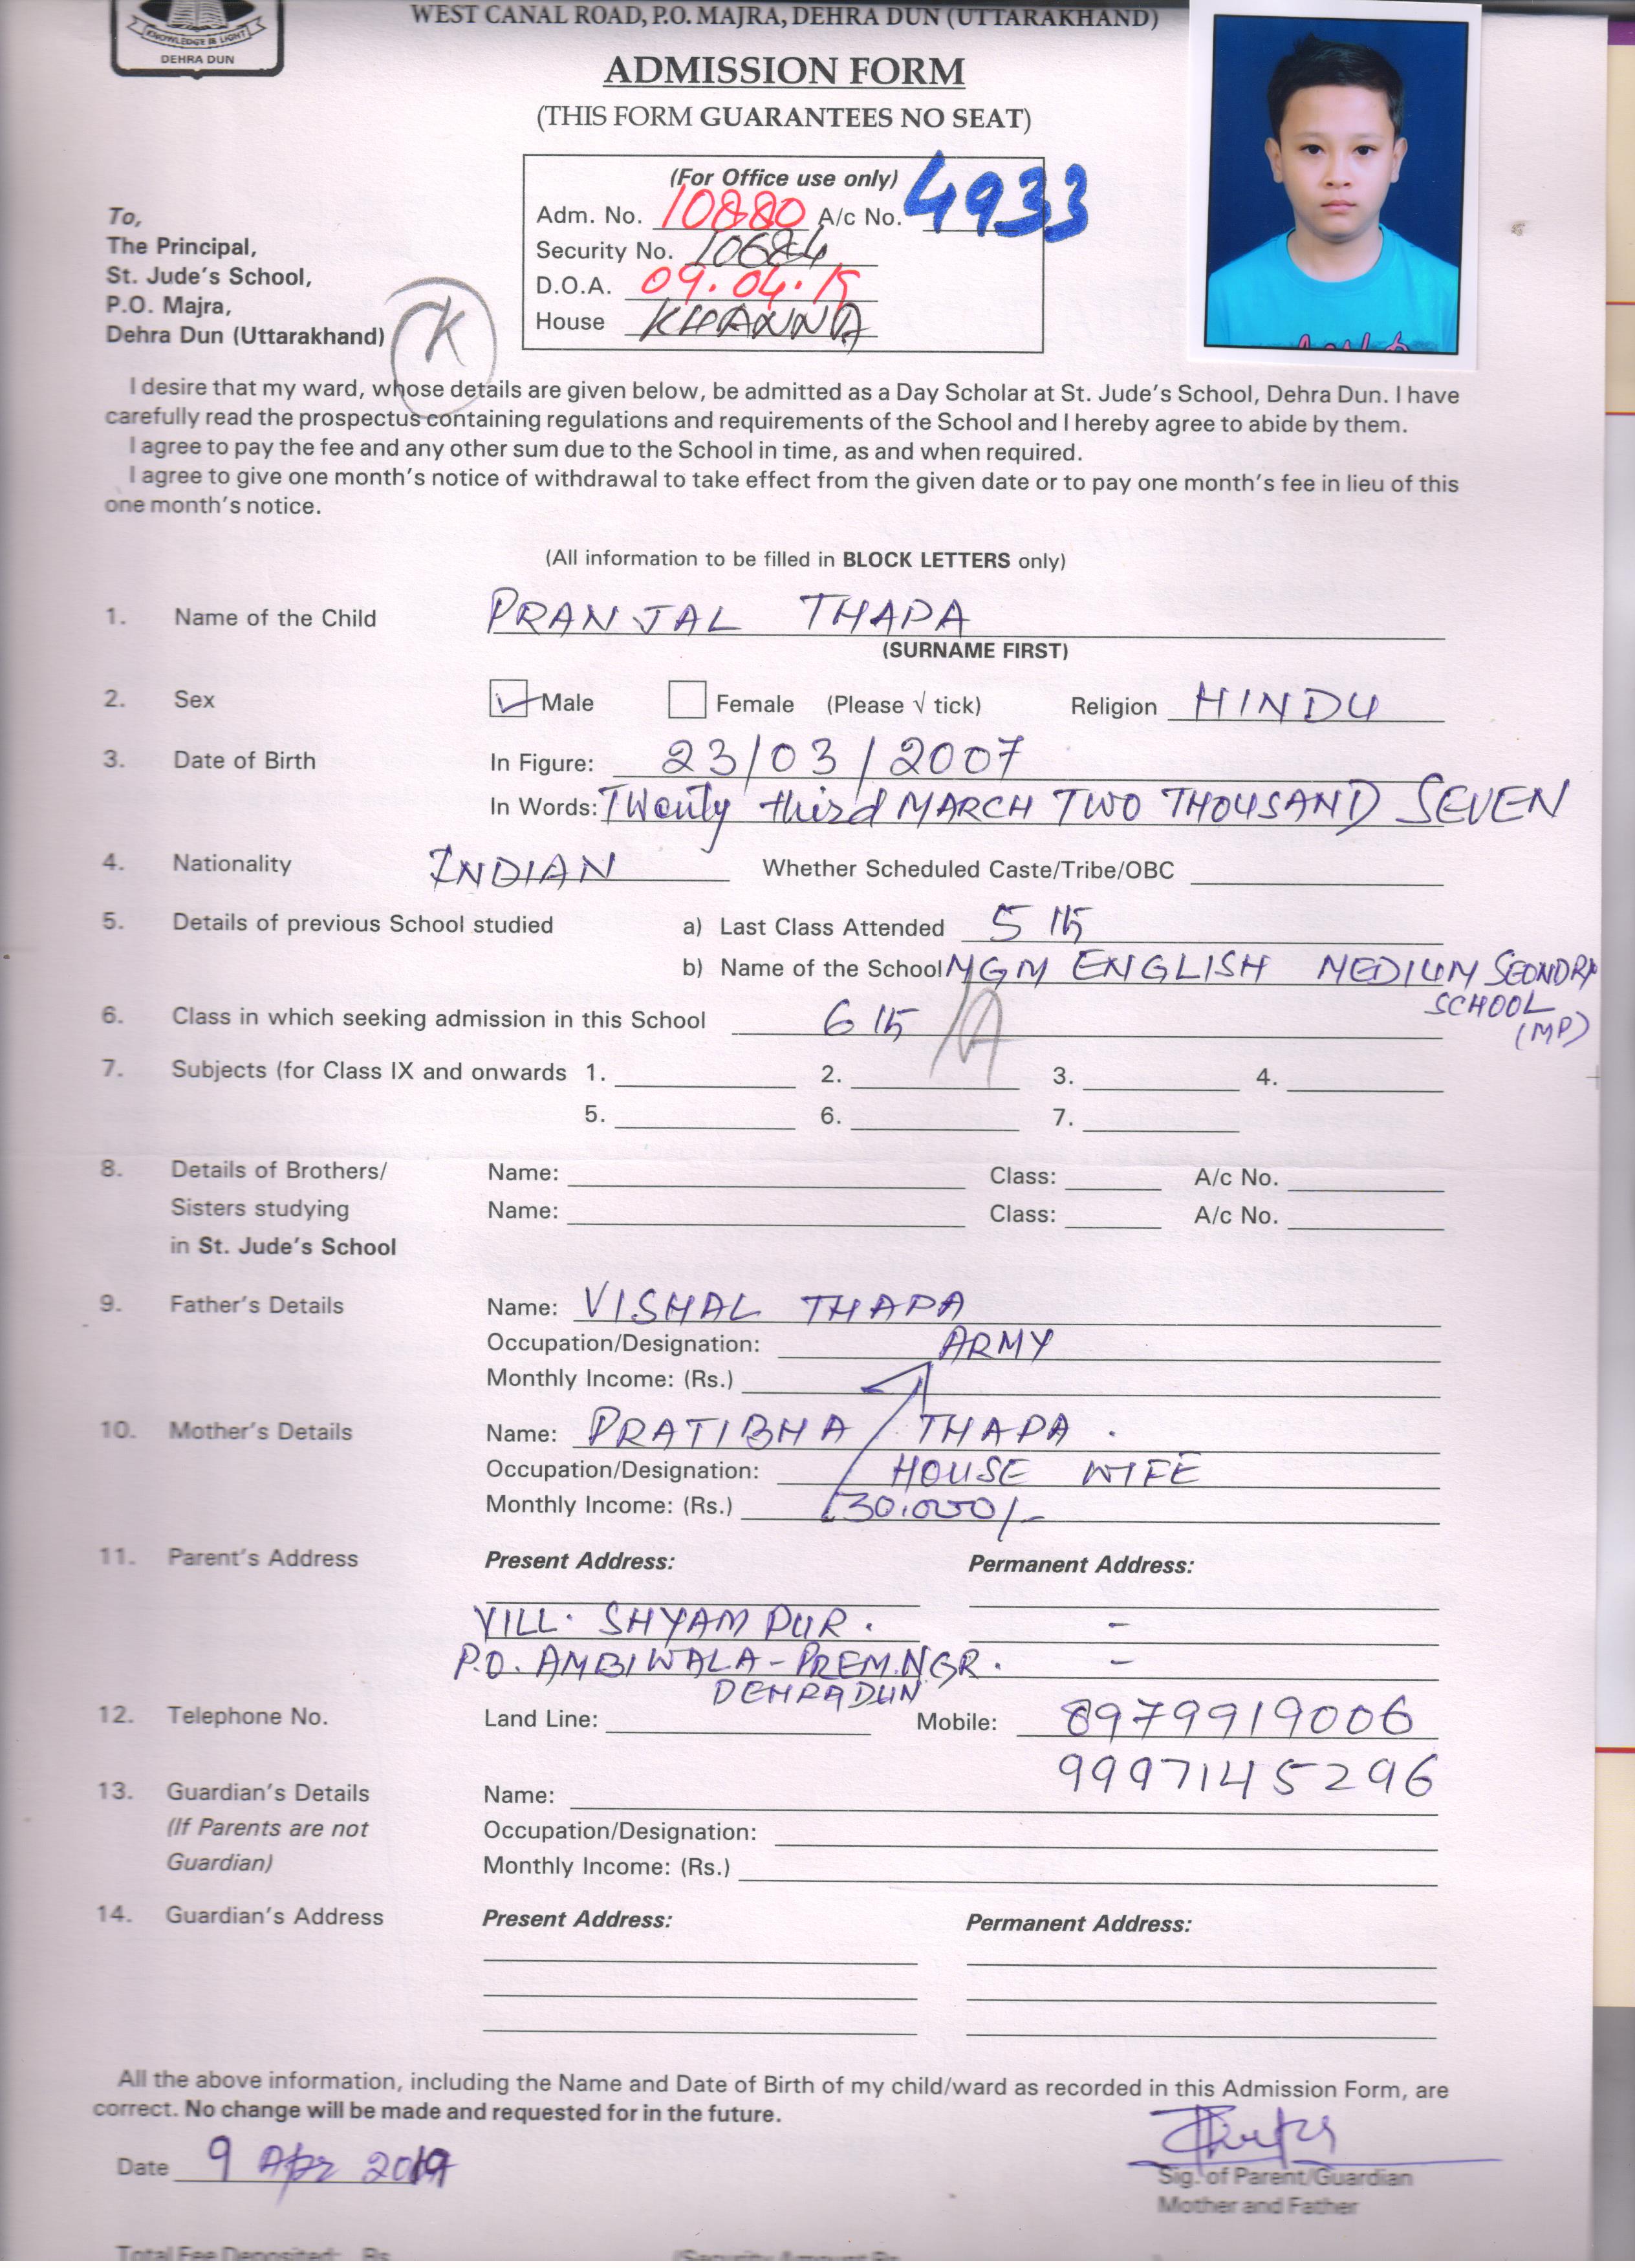 KNOWLEDGE IS LIGHT
DEHRA DUN
WEST CANAL ROAD, P.O. MAJRA, DEHRA DUN (UTTARAKHAND)
ADMISSION FORM
(THIS FORM GUARANTEES NO SEAT)
(For Office use only)
Adm. No. 10880 A/c No. 4933
Security No. 10684
D.O.A. 09.04.19
House KHANNA
To,
The Principal,
St. Jude's School,
P.O. Majra,
Dehra Dun (Uttarakhand)
K
I desire that my ward, whose details are given below, be admitted as a Day Scholar at St. Jude's School, Dehra Dun. I have
carefully read the prospectus containing regulations and requirements of the School and I hereby agree to abide by them.
I agree to pay the fee and any other sum due to the School in time, as and when required.
I agree to give one month's notice of withdrawal to take effect from the given date or to pay one month's fee in lieu of this
one month's notice.
(All information to be filled in BLOCK LETTERS only)
1. Name of the Child PRANJAL THAPA
(SURNAME FIRST)
2. Sex Male Female (Please √ tick) Religion HINDU
3. Date of Birth In Figure: 23/03/2007
In Words: TWenty third MARCH TWO THOUSAND SEVEN
4. Nationality INDIAN Whether Scheduled Caste/Tribe/OBC
5. Details of previous School studied a) Last Class Attended 5 th
b) Name of the School MGM ENGLISH MEDIUM SEONDRY
SCHOOL
(MP)
6. Class in which seeking admission in this School 6 th A
7. Subjects (for Class IX and onwards 1. 2. 3. 4.
5. 6. 7.
8. Details of Brothers/ Name: Class: A/c No.
Sisters studying Name: Class: A/c No.
in St. Jude's School
9. Father's Details Name: VISHAL THAPA
Occupation/Designation: ARMY
Monthly Income: (Rs.)
10. Mother's Details Name: PRATIBHA THAPA .
Occupation/Designation: HOUSE WIFE
Monthly Income: (Rs.) 30.000/-
11. Parent's Address Present Address: Permanent Address:
VILL. SHYAMPUR. -
P.O. AMBIWALA-PREM.NGR. -
DEHRADUN
12. Telephone No. Land Line: Mobile: 8979919006
9997145296
13. Guardian's Details Name:
(If Parents are not Occupation/Designation:
Guardian) Monthly Income: (Rs.)
14. Guardian's Address Present Address: Permanent Address:
All the above information, including the Name and Date of Birth of my child/ward as recorded in this Admission Form, are
correct. No change will be made and requested for in the future.
Date 9 Apr 2019
Sig. of Parent/Guardian
Mother and Father
Total Fee Deposited: Rs. (Security Amount Rs.